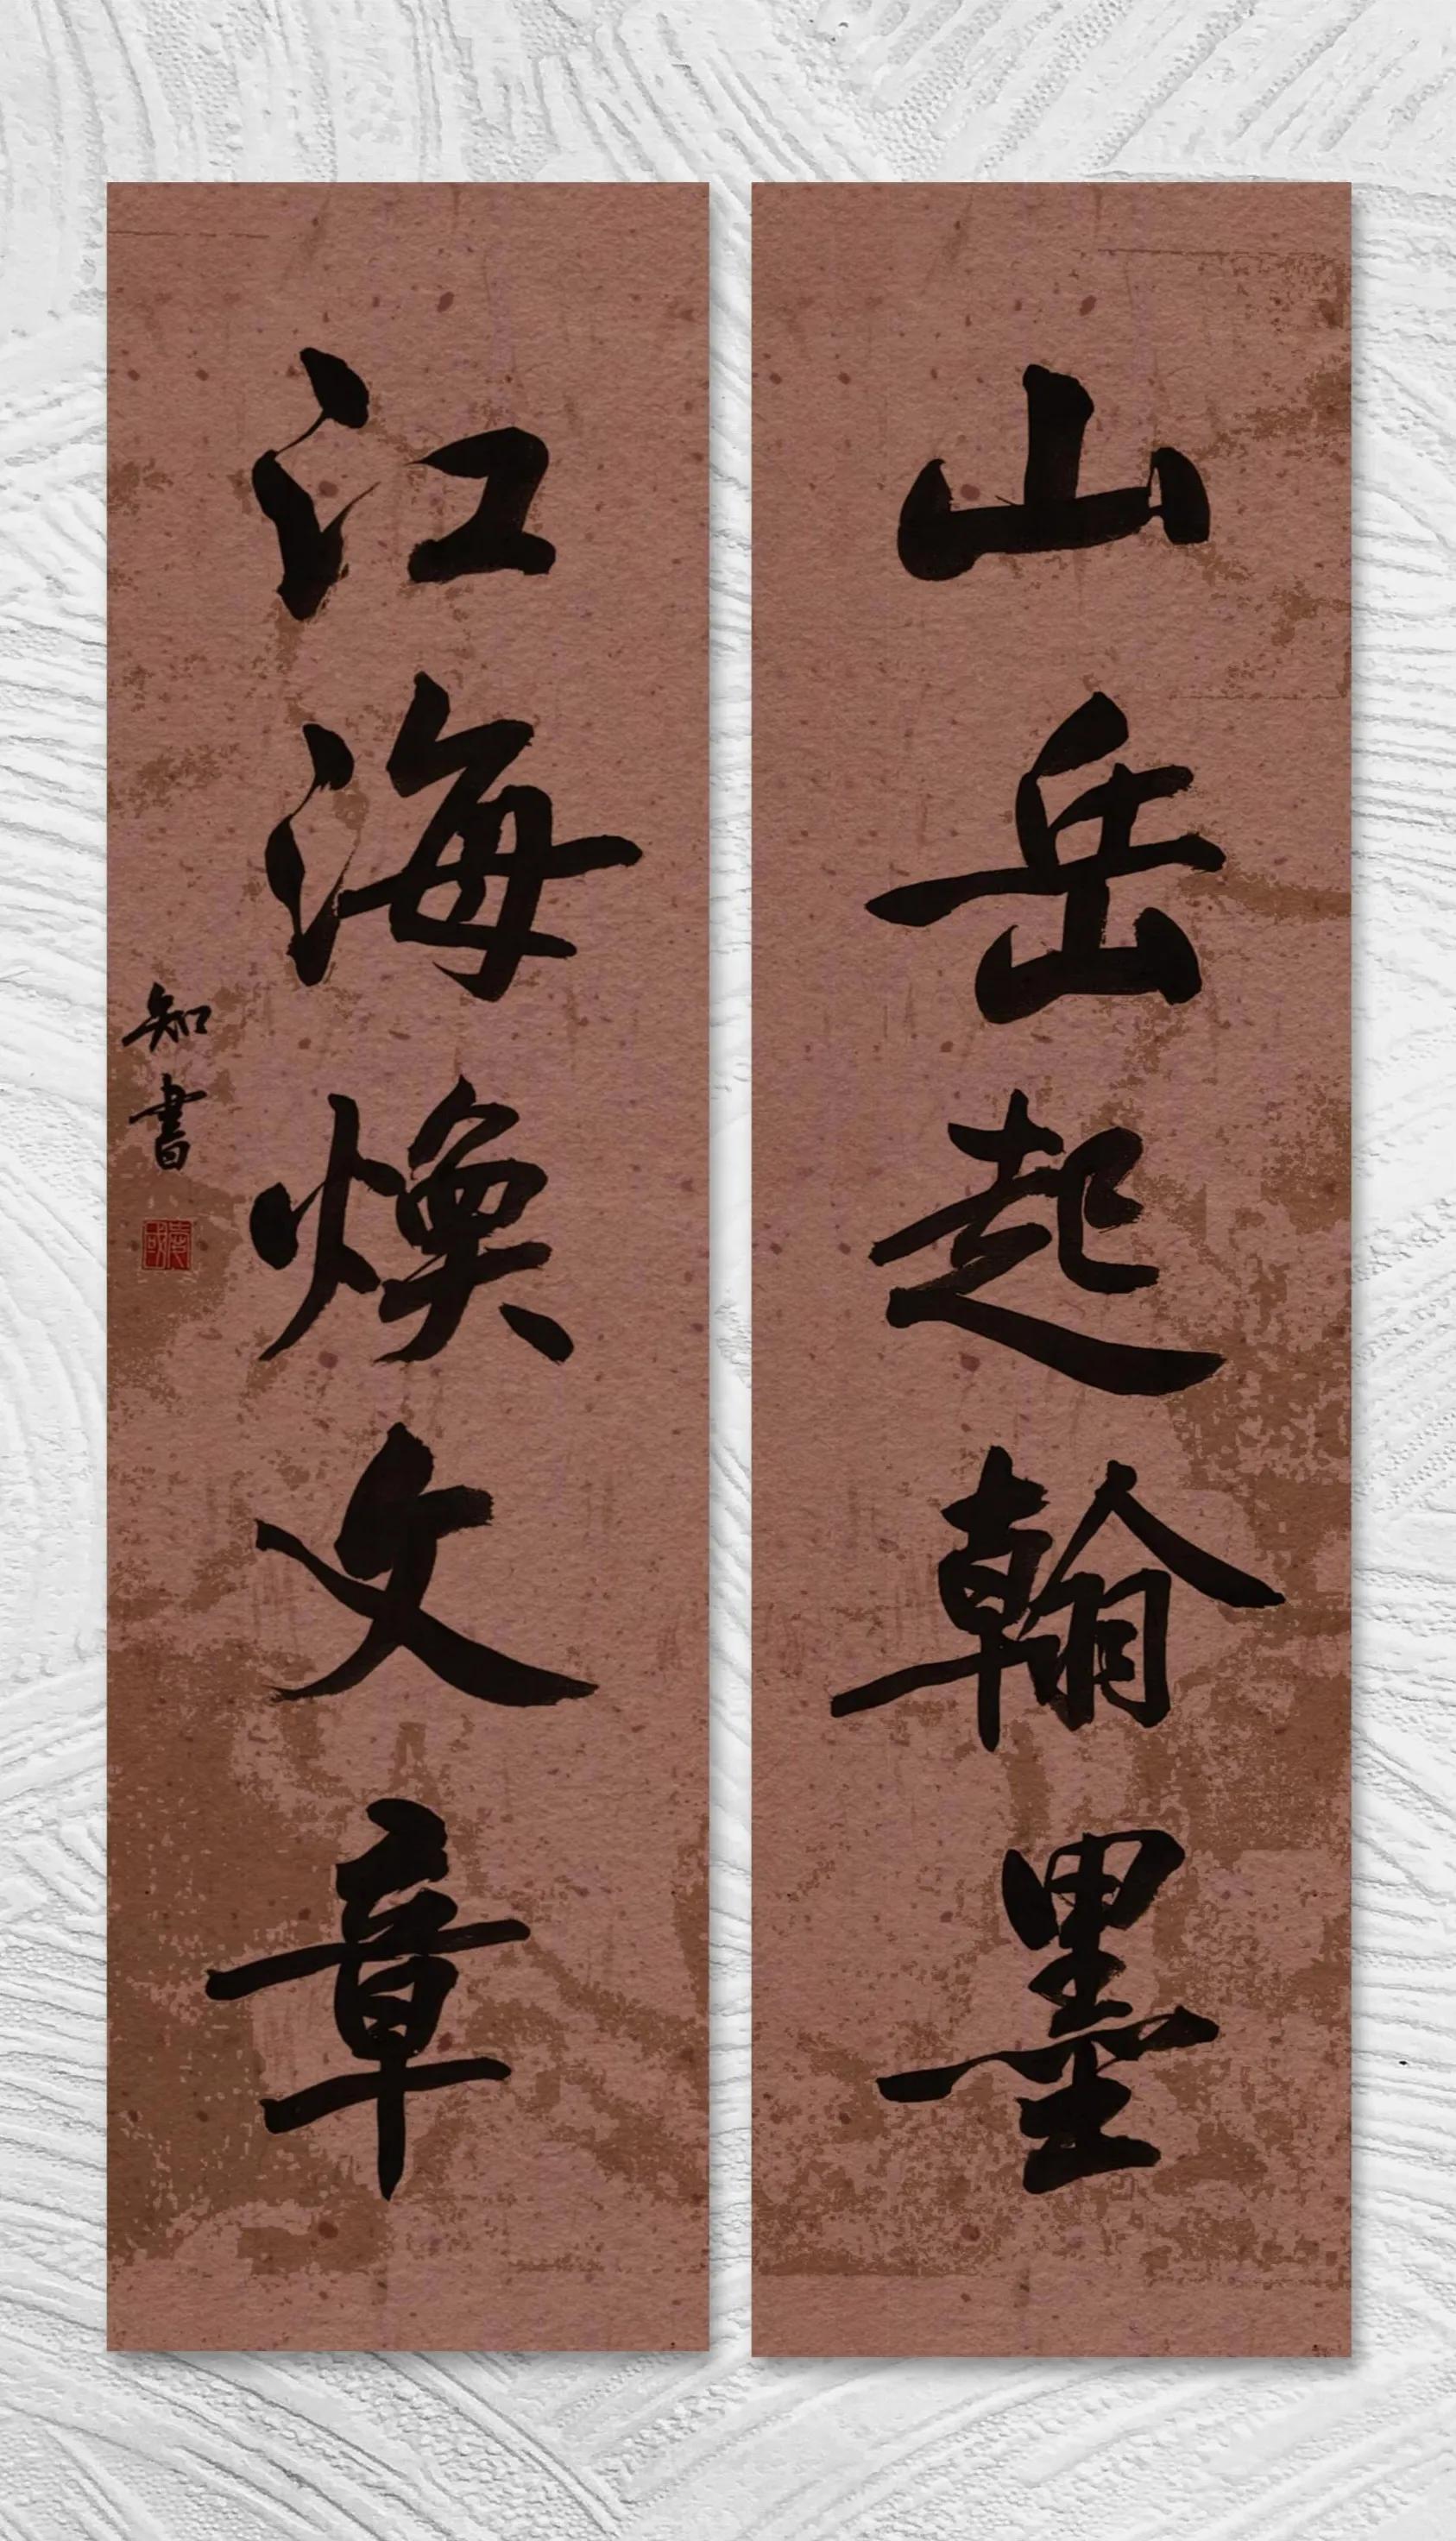 山岳起翰墨
江海焕文章
知書